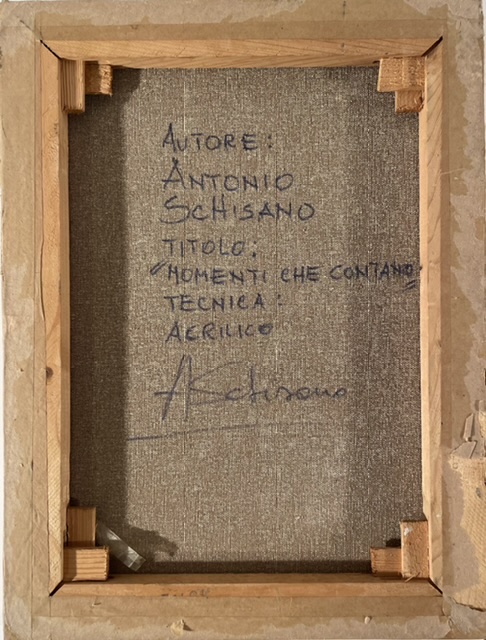 AUTORE:
ANTONIO
SCHISANO
TITOLO:
"MOMENTI CHE CONTANO"
TECNICA:
ACRILICO
ASchisano